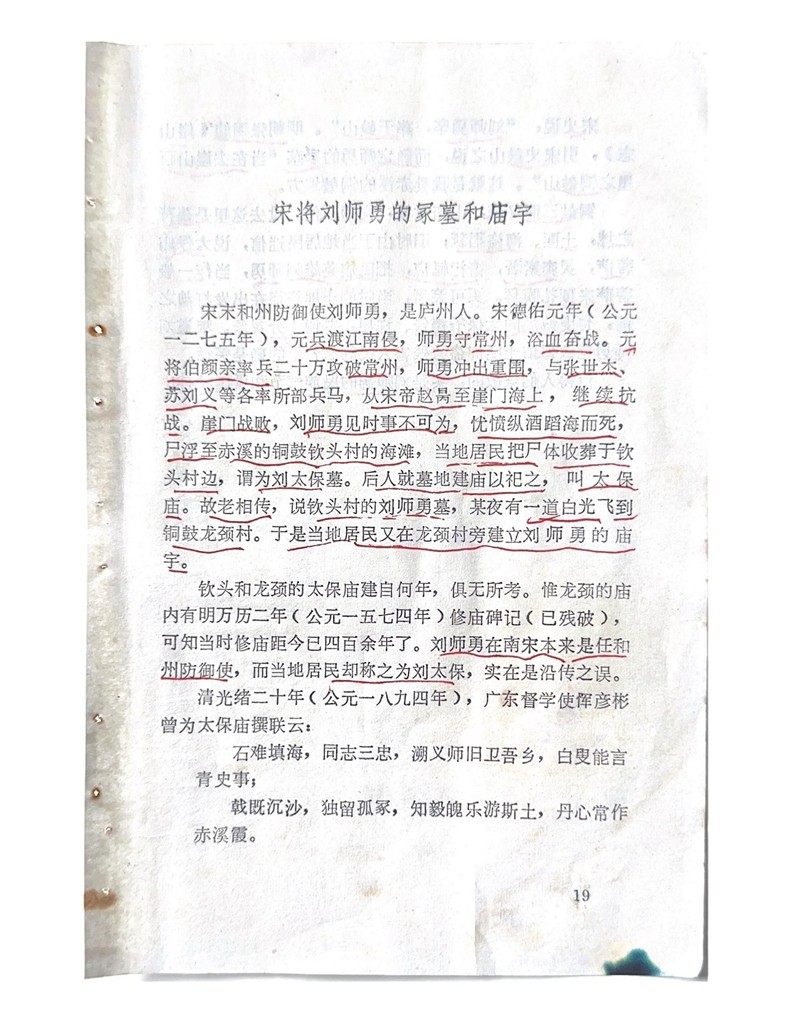 宋将刘师勇的冢墓和庙宇
宋末和州防御使刘师勇，是庐州人。宋德佑元年（公元
一二七五年），元兵渡江南侵，师勇守常州，浴血奋战。元
将伯颜亲率兵二十万攻破常州，师勇冲出重围，与张世杰、
苏刘义等各率所部兵马，从宋帝赵昺至崖门海上，继续抗
战。崖门战败，刘师勇见时事不可为，忧愤纵酒蹈海而死，
尸浮至赤溪的铜鼓钦头村的海滩，当地居民把尸体收葬于钦
头村边，谓为刘太保墓。后人就墓地建庙以祀之，叫太保
庙。故老相传，说钦头村的刘师勇墓，某夜有一道白光飞到
铜鼓龙颈村。于是当地居民又在龙颈村旁建立刘师勇的庙
宇。
钦头和龙颈的太保庙建自何年，俱无所考。惟龙颈的庙
内有明万历二年（公元一五七四年）修庙碑记（已残破），
可知当时修庙距今已四百余年了。刘师勇在南宋本来是任和
州防御使，而当地居民却称之为刘太保，实在是沿传之误。
清光绪二十年（公元一八九四年），广东督学使恽彦彬
曾为太保庙撰联云：
石难填海，同志三忠，溯义师旧卫吾乡，白叟能言
青史事；
戟既沉沙，独留孤冢，知毅魄乐游斯土，丹心常作
赤溪霞。
19